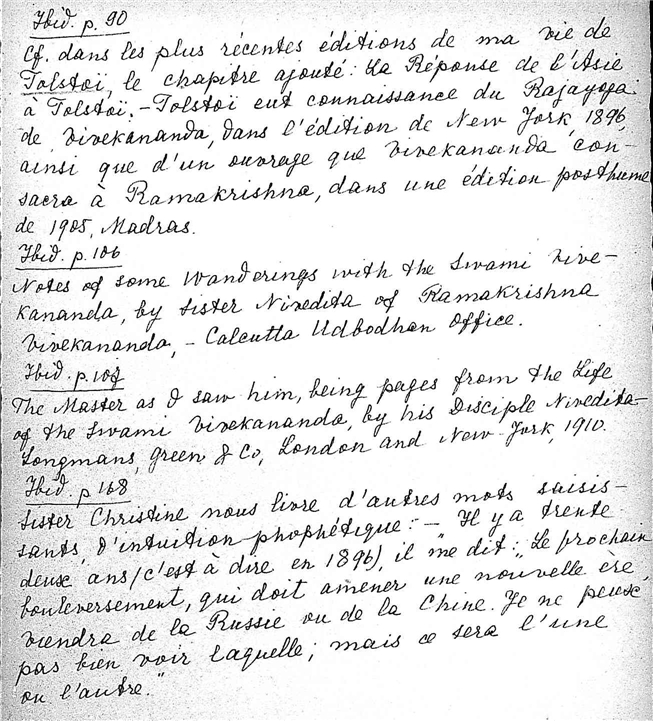 Ibid. p. 90
Cf. dans les plus récentes éditions de ma vie de
Tolstoï, le chapitre ajouté: La Réponse de l'Asie
à Tolstoï. - Tolstoï eut connaissance du Rajayoga
de Vivekananda, dans l'édition de New York 1896,
ainsi que d'un ouvrage que Vivekananda con-
sacra à Ramakrishna, dans une édition posthume
de 1905, Madras.
Ibid. p. 106
Notes of some wanderings with the Swami Vive-
kananda, by Sister Nivedita of Ramakrishna
Vivekananda, - Calcutta Udbodhan Office.
Ibid. p.
The Master as I saw him, being pages from the Life
of the Swami Vivekananda, by his Disciple Nivedita -
Longmans, Green & Co, London and New-York, 1910.
Ibid. p. 168
Sister Christine nous livre d'autres mots saisis-
sants, d'intuition prophétique: - "Il y a trente
deux ans (c'est à dire en 1896), il me dit: "Le prochain
bouleversement, qui doit amener une nouvelle ère,
viendra de la Russie ou de la Chine. Je ne peux
pas bien voir laquelle; mais ce sera l'une
ou l'autre."